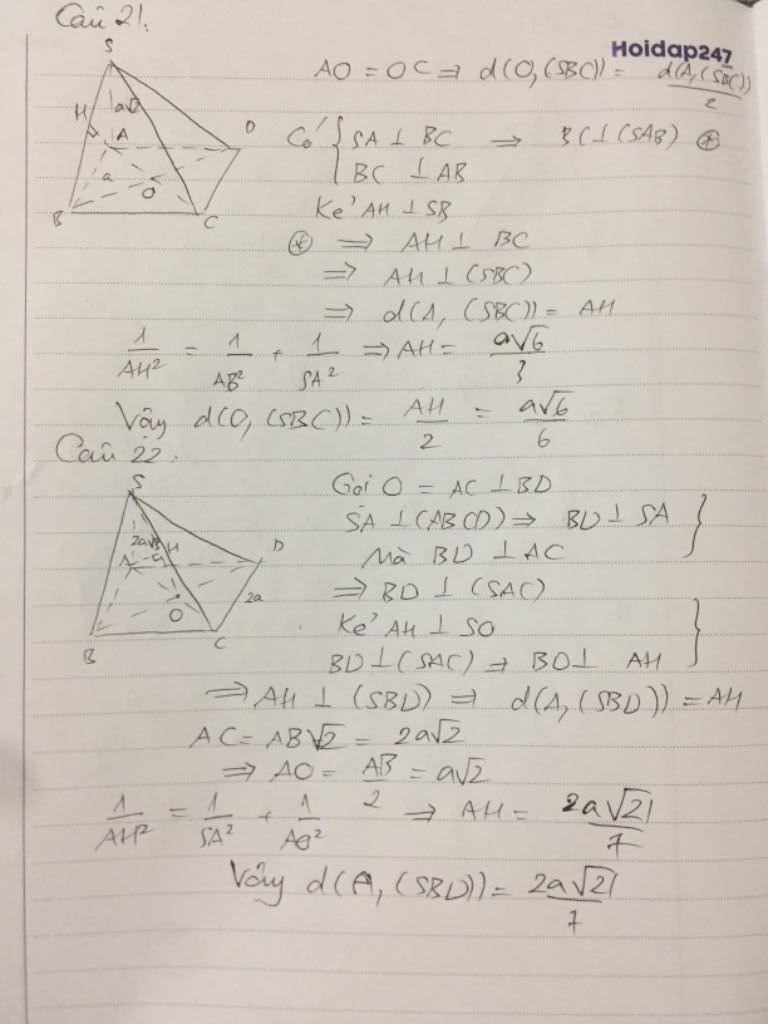 Câu 21.
Hoidap247
S
H
a√2
A
D
a
O
B
C
AO = OC ⇒ d(O,(SBC)) = d(A,(SBC))/2
Có { SA ⊥ BC ⇒ BC ⊥ (SAB) ⊛
BC ⊥ AB
Kẻ AH ⊥ SB
⊛ ⇒ AH ⊥ BC
⇒ AH ⊥ (SBC)
⇒ d(A, (SBC)) = AH
1/AH² = 1/AB² + 1/SA² ⇒ AH = a√6/3
Vậy d(O, (SBC)) = AH/2 = a√6/6
Câu 22.
S
2a√3
H
A
D
2a
O
B
C
Gọi O = AC ⊥ BD
SA ⊥ (ABCD) ⇒ BD ⊥ SA }
Mà BD ⊥ AC
⇒ BD ⊥ (SAC)
Kẻ AH ⊥ SO }
BD ⊥ (SAC) ⇒ BD ⊥ AH
⇒ AH ⊥ (SBD) ⇒ d(A, (SBD)) = AH
AC = AB√2 = 2a√2
⇒ AO = AB/2 = a√2
1/AH² = 1/SA² + 1/AO² ⇒ AH = 2a√21/7
Vậy d(A, (SBD)) = 2a√21/7